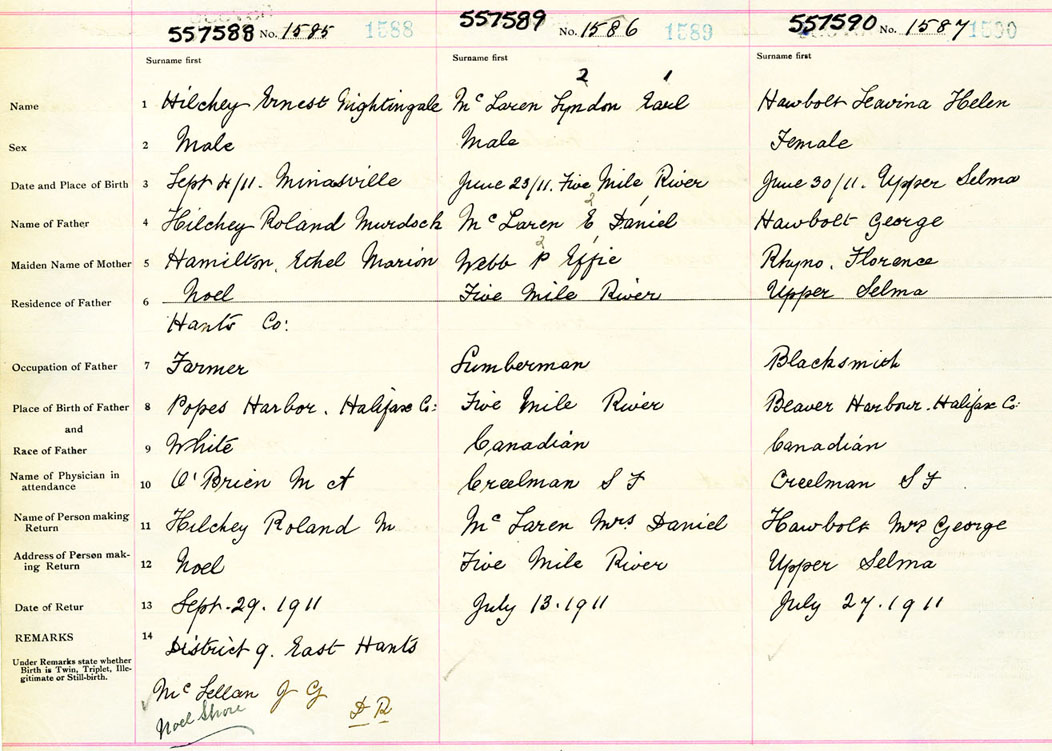 557588 No. 1585 1588
557589 No. 1586 1589
557590 No. 1587 1590
Surname first Surname first Surname first
2 1
Name 1 Hilchey Ernest Nightingale Mc Laren Lyndon Earl Hawbolt Leavina Helen
Sex 2 Male Male Female
Date and Place of Birth 3 Sept 4/11. Minasville June 23/11. Five Mile River June 30/11. Upper Selma
2 1
Name of Father 4 Hilchey Roland Murdock Mc Laren E Daniel Hawbolt George
2 1
Maiden Name of Mother 5 Hamilton, Ethel Marion Webb P Effie Rhyno, Florence
Residence of Father 6 Noel Five Mile River Upper Selma
Hants Co:
Occupation of Father 7 Farmer Lumberman Blacksmith
Place of Birth of Father 8 Popes Harbor, Halifax Co: Five Mile River Beaver Harbour, Halifax Co:
and
Race of Father 9 White Canadian Canadian
Name of Physician in
attendance 10 O'Brien M A Creelman S F Creelman S F
Name of Person making
Return 11 Hilchey Roland M Mc Laren Mrs Daniel Hawbolt Mrs George
Address of Person mak-
ing Return 12 Noel Five Mile River Upper Selma
Date of Retur 13 Sept. 29. 1911 July 13. 1911 July 27. 1911
REMARKS 14 District 9. East Hants
Under Remarks state whether
Birth is Twin, Triplet, Ille-
gitimate or Still-birth.
Mc Lellan J G
Noel Shore D R